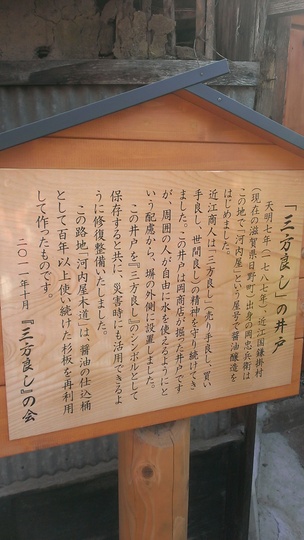 「三方良し」の井戸
天明七年（一七八七年）近江国鎌掛村
（現在の滋賀県日野町）出身の岡忠兵衛は
この地で「河内屋」という屋号で醤油醸造を
はじめました。
近江商人は「三方良し」（売り手良し、買い
手良し、世間良し）の精神を守り続けてき
ました。この井戸は岡商店が掘った井戸です
が、周囲の人が自由に水を使えるようにと
いう配慮から、塀の外側に設置しました。
この井戸を『三方良し』のシンボルとして
保存すると共に、災害時にも活用できるよ
うに修復整備いたしました。
この路地「河内屋木道」は、醤油の仕込桶
として百年以上使い続けた杉板を再利用
して作ったものです。
二〇一一年十月 『三方良し』の会